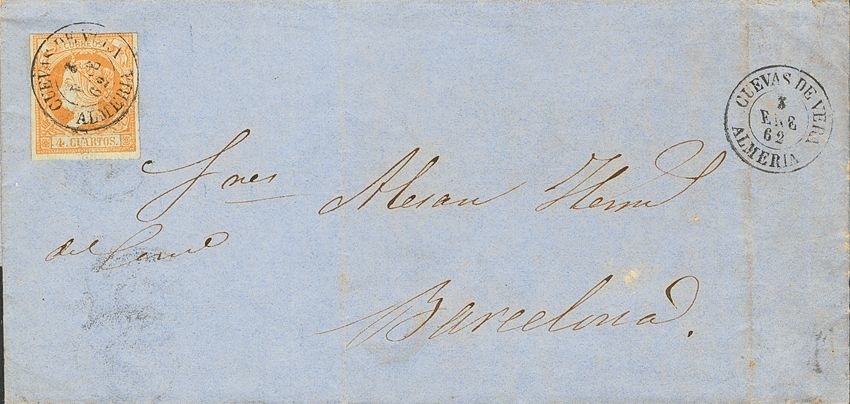 CORREOS
CUEVAS DE VERA
ALMERIA
4 CUARTOS.
CUEVAS DE VERA
3
ENE
62
ALMERIA
Sres Alesan Herms
del Com.º
Barcelona.